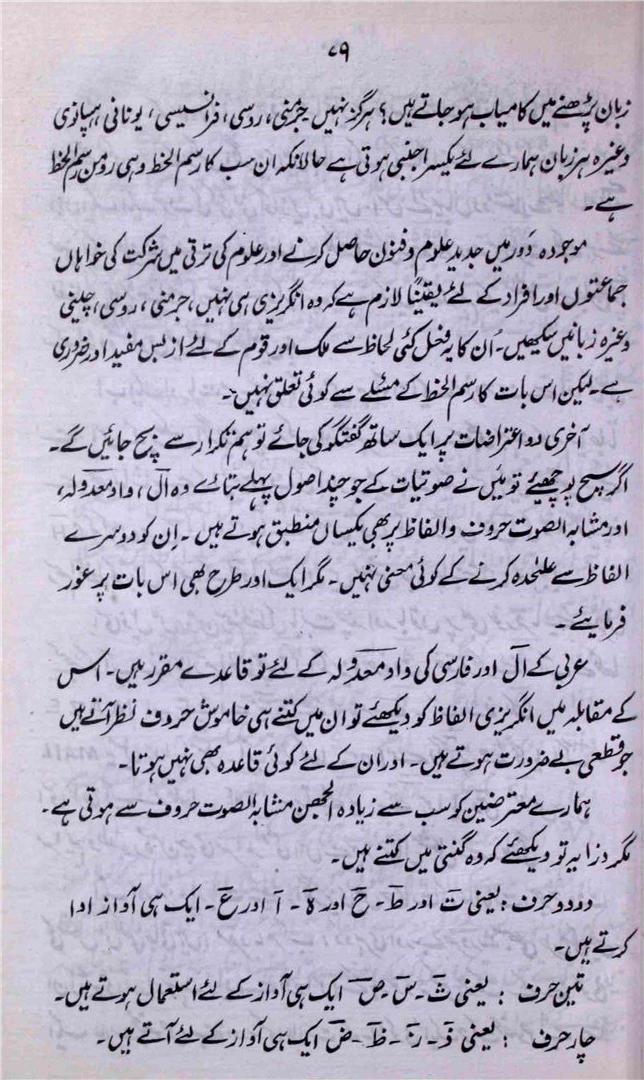 ۷۹
زبان پڑھنے میں کامیاب ہو جاتے ہیں؟ ہرگز نہیں جرمنی، روسی، فرانسیسی، یونانی ہسپانوی
وغیرہ ہر زبان ہمارے لئے یکسر اجنبی ہوتی ہے حالانکہ ان سب کا رسم الخط وہی رومن رسم الخط
ہے۔
موجودہ دَور میں جدید علوم و فنون حاصل کرنے اور علوم کی ترقی میں شرکت کی خواہاں
جماعتوں اور افراد کے لئے یقینًا لازم ہے کہ وہ انگریزی ہی نہیں، جرمنی، روسی، چینی
وغیرہ زبانیں سیکھیں۔ اُن کا یہ فعل کئی لحاظ سے ملک اور قوم کے لئے ازبس مفید اور ضروری
ہے۔ لیکن اس بات کا رسم الخط کے مسئلے سے کوئی تعلق نہیں۔
آخری دو اعتراضات پر ایک ساتھ گفتگو کی جائے تو ہم تکرار سے بچ جائیں گے۔
اگر سچ پوچھیئے تو میں نے صوتیات کے جو چند اصول پہلے بتائے وہ ال، واو معدولہ،
اور مشابہ الصوت حروف و الفاظ پر بھی یکساں منطبق ہوتے ہیں۔ اِن کو دوسرے
الفاظ سے علیٰحدہ کرنے کے کوئی معنی نہیں۔ مگر ایک اور طرح بھی اس بات پر غور
فرمایئے۔
عربی کے ال اور فارسی کی واو معدولہ کے لئے تو قاعدے مقرر ہیں۔ اس
کے مقابلہ میں انگریزی الفاظ کو دیکھئے تو ان میں کتنے ہی خاموش حروف نظر آتے ہیں
جو قطعی بے ضرورت ہوتے ہیں۔ اور ان کے لئے کوئی قاعدہ بھی نہیں ہوتا۔
ہمارے معترضین کو سب سے زیادہ الجھن مشابہ الصوت حروف سے ہوتی ہے۔
مگر ذرا یہ تو دیکھئے کہ وہ گنتی میں کتنے ہیں۔
دو دو حرف : یعنی ت اور ط۔ ح اور ہ۔ ا اور ع۔ ایک ہی آواز ادا
کرتے ہیں۔
تین حرف : یعنی ث۔ س۔ ص ایک ہی آواز کے لئے استعمال ہوتے ہیں۔
چار حرف : یعنی ذ۔ ز۔ ظ۔ ض ایک ہی آواز کے لئے آتے ہیں۔